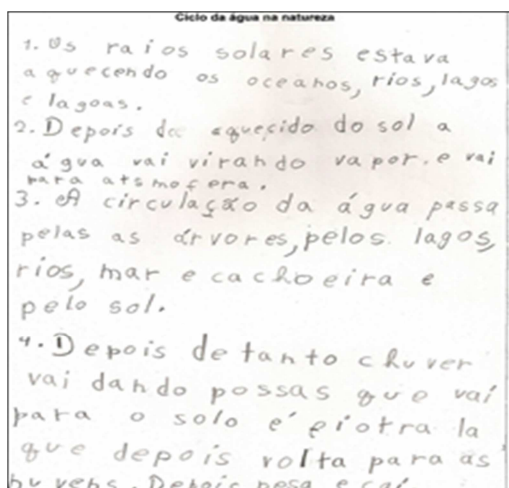 Ciclo da água na natureza
1. Os raios solares estava
aquecendo os oceanos, rios, lagos
e lagoas.
2. Depois de aquecido do sol a
água vai virando vapor. e vai
para atsmofera.
3. A circulação da água passa
pelas as árvores, pelos lagos,
rios, mar e cachoeira e
pelo sol.
4. Depois de tanto chuver
vai dando possas que vai
para o solo e la
que depois volta para as
nuvens. Depois pesa e cai